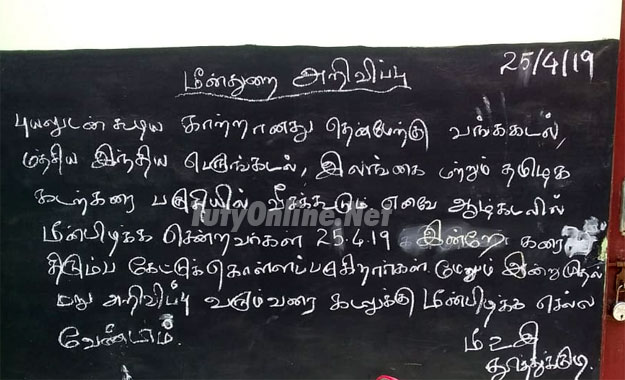 25/4/19
மீன்துறை அறிவிப்பு
புயலுடன் கூடிய காற்றானது தென்மேற்கு வங்ககடல்,
மத்திய இந்திய பெருங்கடல், இலங்கை மற்றும் தமிழக
கடற்கரை பகுதியில் வீசக்கூடும் எனவே ஆழ்கடலில்
TutyOnline.Net
மீன்பிடிக்க சென்றவர்கள் 25.4.19 இன்றே கரை
திரும்ப கேட்டுக்கொள்ளப்படுகிறார்கள். மேலும் இன்று முதல்
மறு அறிவிப்பு வரும்வரை கடலுக்கு மீன்பிடிக்க செல்ல
வேண்டாம்.
மீ உ இ
தூத்துக்குடி.